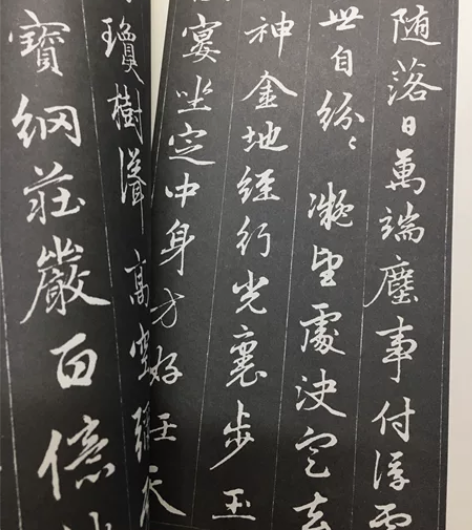 随落日萬端塵事付浮雲
世自紛紛 凝望處決定去
神金地經行光裏步玉
宴坐定中身方好
瓊樹聳高空
寶網莊嚴百億